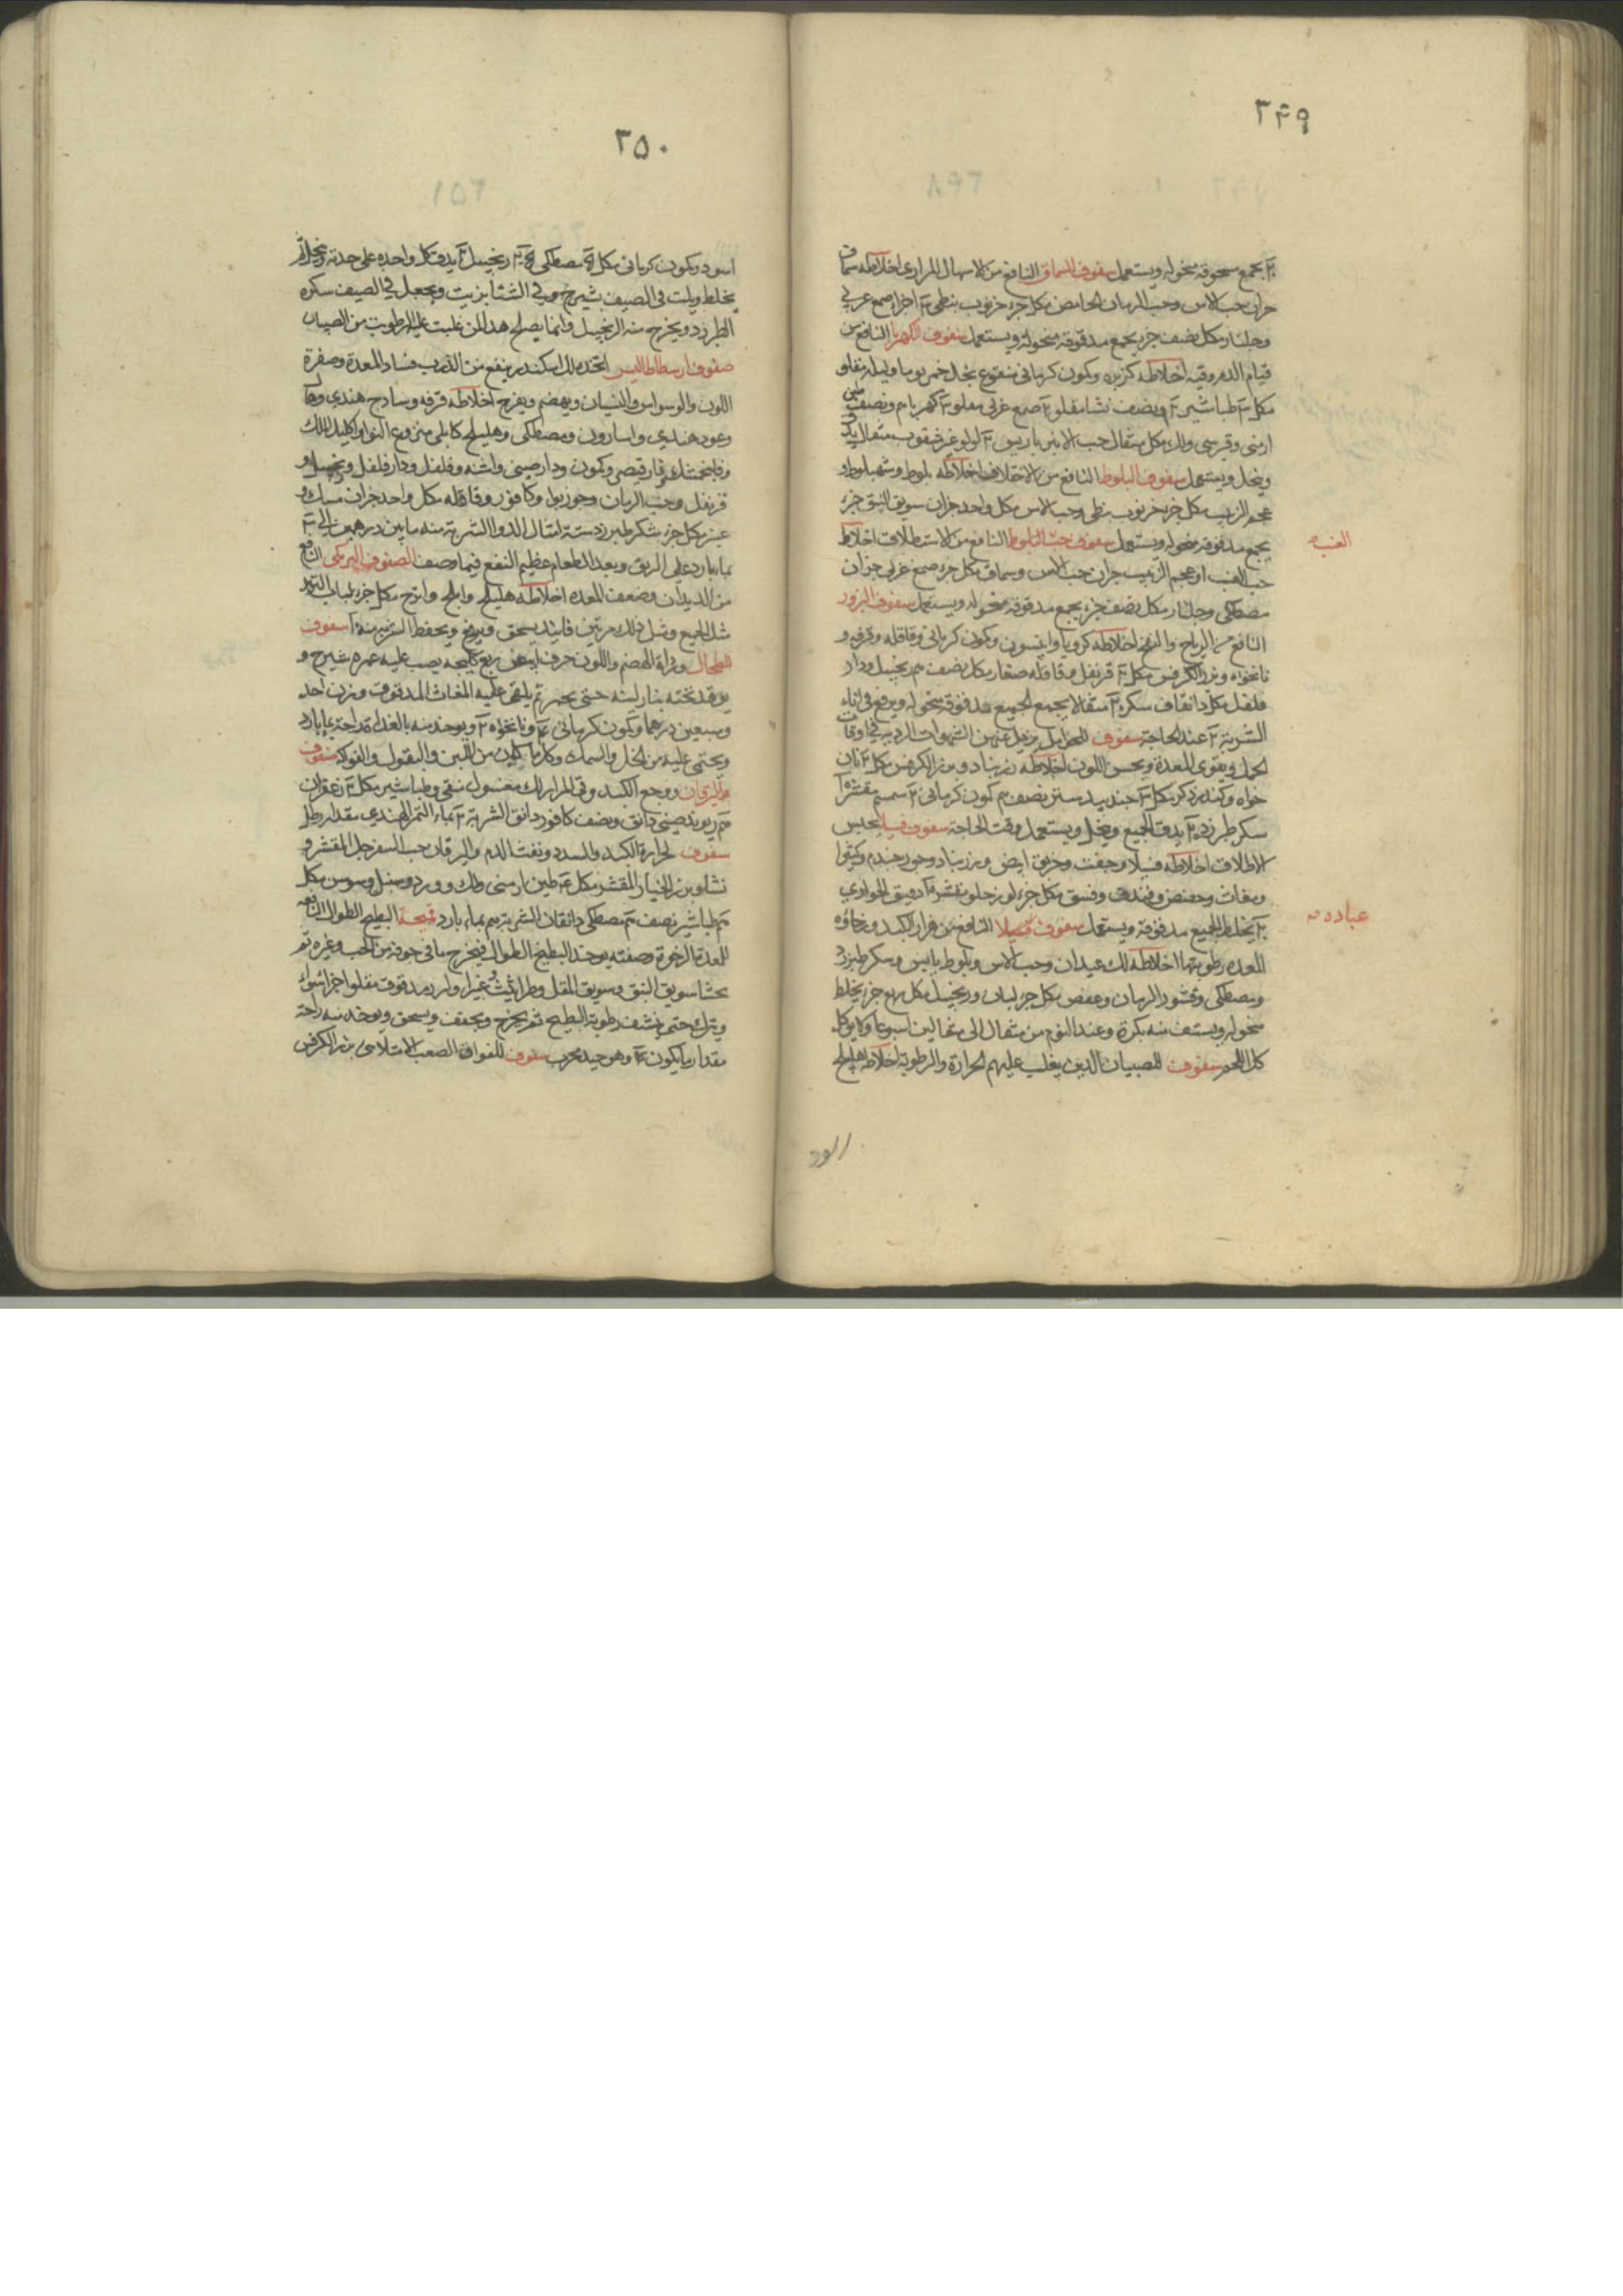 ٣٤٩
يجمع مسحوقه منخوله ويستعمل سفوف السماق النافع من الاسهال المراري اخلاطه سماق
جزان حب الاس وحب الرمان الحامض مكل جزء خرنوب نبطي ٣ اجزاء صمع عربي
وجلنار مكل نصف جزء يجمع مدقوقه منخوله ويستعمل سفوف الكهربا النافع من
قيام الدم وقيه اخلاطه كزبره وكمون كرماني منقوع بخل خمر يوما وليله مقلو
مكل طباشير ونصف نشا مقلو صمغ عربي مقلو كهربا م ونصف طين
ارمنى وقبرسي ولك مكل مثقال حب الانبرباريس لولو غير مثقوب مثقال يدق
وينخل ويستعمل سفوف البلوط النافع من الاختلاف اخلاطه بلوط وشهبلوط و
عجم الزبيب مكل جزء خرنوب نبطي وحب الاس مكل واحد جزان سويق النبق جزء
يجمع مدقوقه منخوله ويستعمل سفوف حب البلوط النافع من الاستطلاق اخلاطه
العنب
حب العنب او عجم الزبيب جزان حب الاس وسماق مكل جزء صمغ عربي جزان
مصطكى وجلنار مكل نصف جزء يجمع مدقوقه منخوله ويستعمل سفوف البزور
النافع من الرياح والنفخ اخلاطه كرويا وانيسون وكمون كرماني وقاقله وقرفه و
نانخواه وبزر الكرفس مكل قرنفل وقاقله صغار مكل نصف م زنجبيل ودار
فلفل مكل دانقان سكر مثقالا يجمع الجميع مدقوقه منخوله ويرفع في اناء
الشربة عند الحاجة سفوف للحوامل يزيل عنهن الشهوات الرديه في اوقات
الحمل ويقوى المعدة ويحسن اللون اخلاطه زرنباد وبزر الكرفس مكل نان
خواه وكندر ذكر مكل جندبيدستر نصف م كمون كرماني سمسم مقشر
سكر طبرزد يدق الجميع وينخل ويستعمل وقت الحاجة سفوف فنيلا يحبس
الاطلاق اخلاطه فنيلا وجفت وخربق ابيض وزرنباد وجوز جندم وكثيرا
ومغاث وحضض وفندق وفستق مكل جزء لوز حلو مقشر دقيق الحواري
عباده
يخلط الجميع مدقوقه ويستعمل سفوف فنيلا النافع من حرارة الكبد ورخاوه
المعده ورطوبتها اخلاطه لك عيدان وحب الاس وبلوط يابس وسكر طبرزد
ومصطكى وقشور الرمان وعفص مكل جزء لبان وزنجبيل مكل ربع جزء يخلط
منخوله ويستف منه بكرة وعند النوم من مثقال الى مثقالين اسبوعا ولا يوكل
كل اللحم سفوف للصبيان الذين يغلب عليهم الحرارة والرطوبة اخلاطه اهليلج
اسود
٣٥٠
اسود وكمون كرماني مكل مصطكى زنجبيل يدق كل واحده على حدته وينخل ثم
يخلط ويلت في الصيف بشيرج وفي الشتا بزيت ويجعل في الصيف سكره
الطبرزد ويخرج منه الزنجبيل وانما يصلح هذا لمن غلبت عليه الرطوبت من الصبيان
صفوف ارسطاطاليس اتخذه للاسكندر ينفع من الذرب فساد المعدة وصفرة
اللون والوسواس والنسيان ويهضم ويفرح اخلاطه قرفه وسادج هندي
وعود هندي واسارون ومصطكى وهليلج كابلى منزوع النوا واكليل الملك
وفلنجمشك وقارقيصى وكمون ودارصينى واشنه وفلفل ودارفلفل وزنجبيل و
قرنفل وحب الرمان وجوز بوا وكافور وقاقله مكل واحد جزان مسك و
عنبر مكل جزء سكر طبرزد ستة امثال الدوا الشربة منه ما بين درهمين الى
بما بارد على الريق وبعد الطعام عظيم النفع فيما وصف الصفوف البرمكى النافع
من الديدان وضعف المعده اخلاطه هليلج واملج وابرنج مكل جزء لباب التربد
مثل الجميع ومثل ذلك مرتين فانيد يسحق ويمزج ويحفظ الشربه منه سفوف
للطحال ورداة الهضم واللون حرف ابيض ربع كيلجه يصب عليه غمره شيرج و
يوقد تحته بنار لينه حتى يحمر ثم يلقى عليه المغاث المدقوق وزن احد
وسبعين درهما وكمون كرماني ونانخواه ويوخذ منه بالغداه قدر راحة بما بارد
ويحتمى عليه من الخل والسمك وكل ما كان من اللبن والبقول والفواكه سفوف
لليرقان ووجع الكبد وقى المرار لك مغسول نقى وطباشير مكل زعفران
ريوند صيني دانق ونصف كافور دانق الشربة بماء التمر الهندي مقدار رطل
سفوف لحرارة الكبد والسدد ونفث الدم واليرقان حب السفرجل المقشر و
نشا وبزر الخيار المقشر مكل طين ارمنى ولك وورد وسنبل وسوس مكل
طباشير نصف م مصطكى دانقان الشربة م بماء بارد قميحة البطيخ الطوال النافعه
للمعدة الرخوة وصفته يوخذ البطيخ الطوال فيخرج ما في جوفه من الحب وغيره ثم
يحشا سويق النبق وسويق المقل وطراثيث مدقوق مقلوا اجزا سوا
ويترك حتى ينشف رطوبة البطيخ ثم يخرج ويجفف ويسحق ويوخذ منه راحة
مقدار ما يكون وهو جيد مجرب سفوف للفواق الصعب الامتلاءى بزر الكرفس